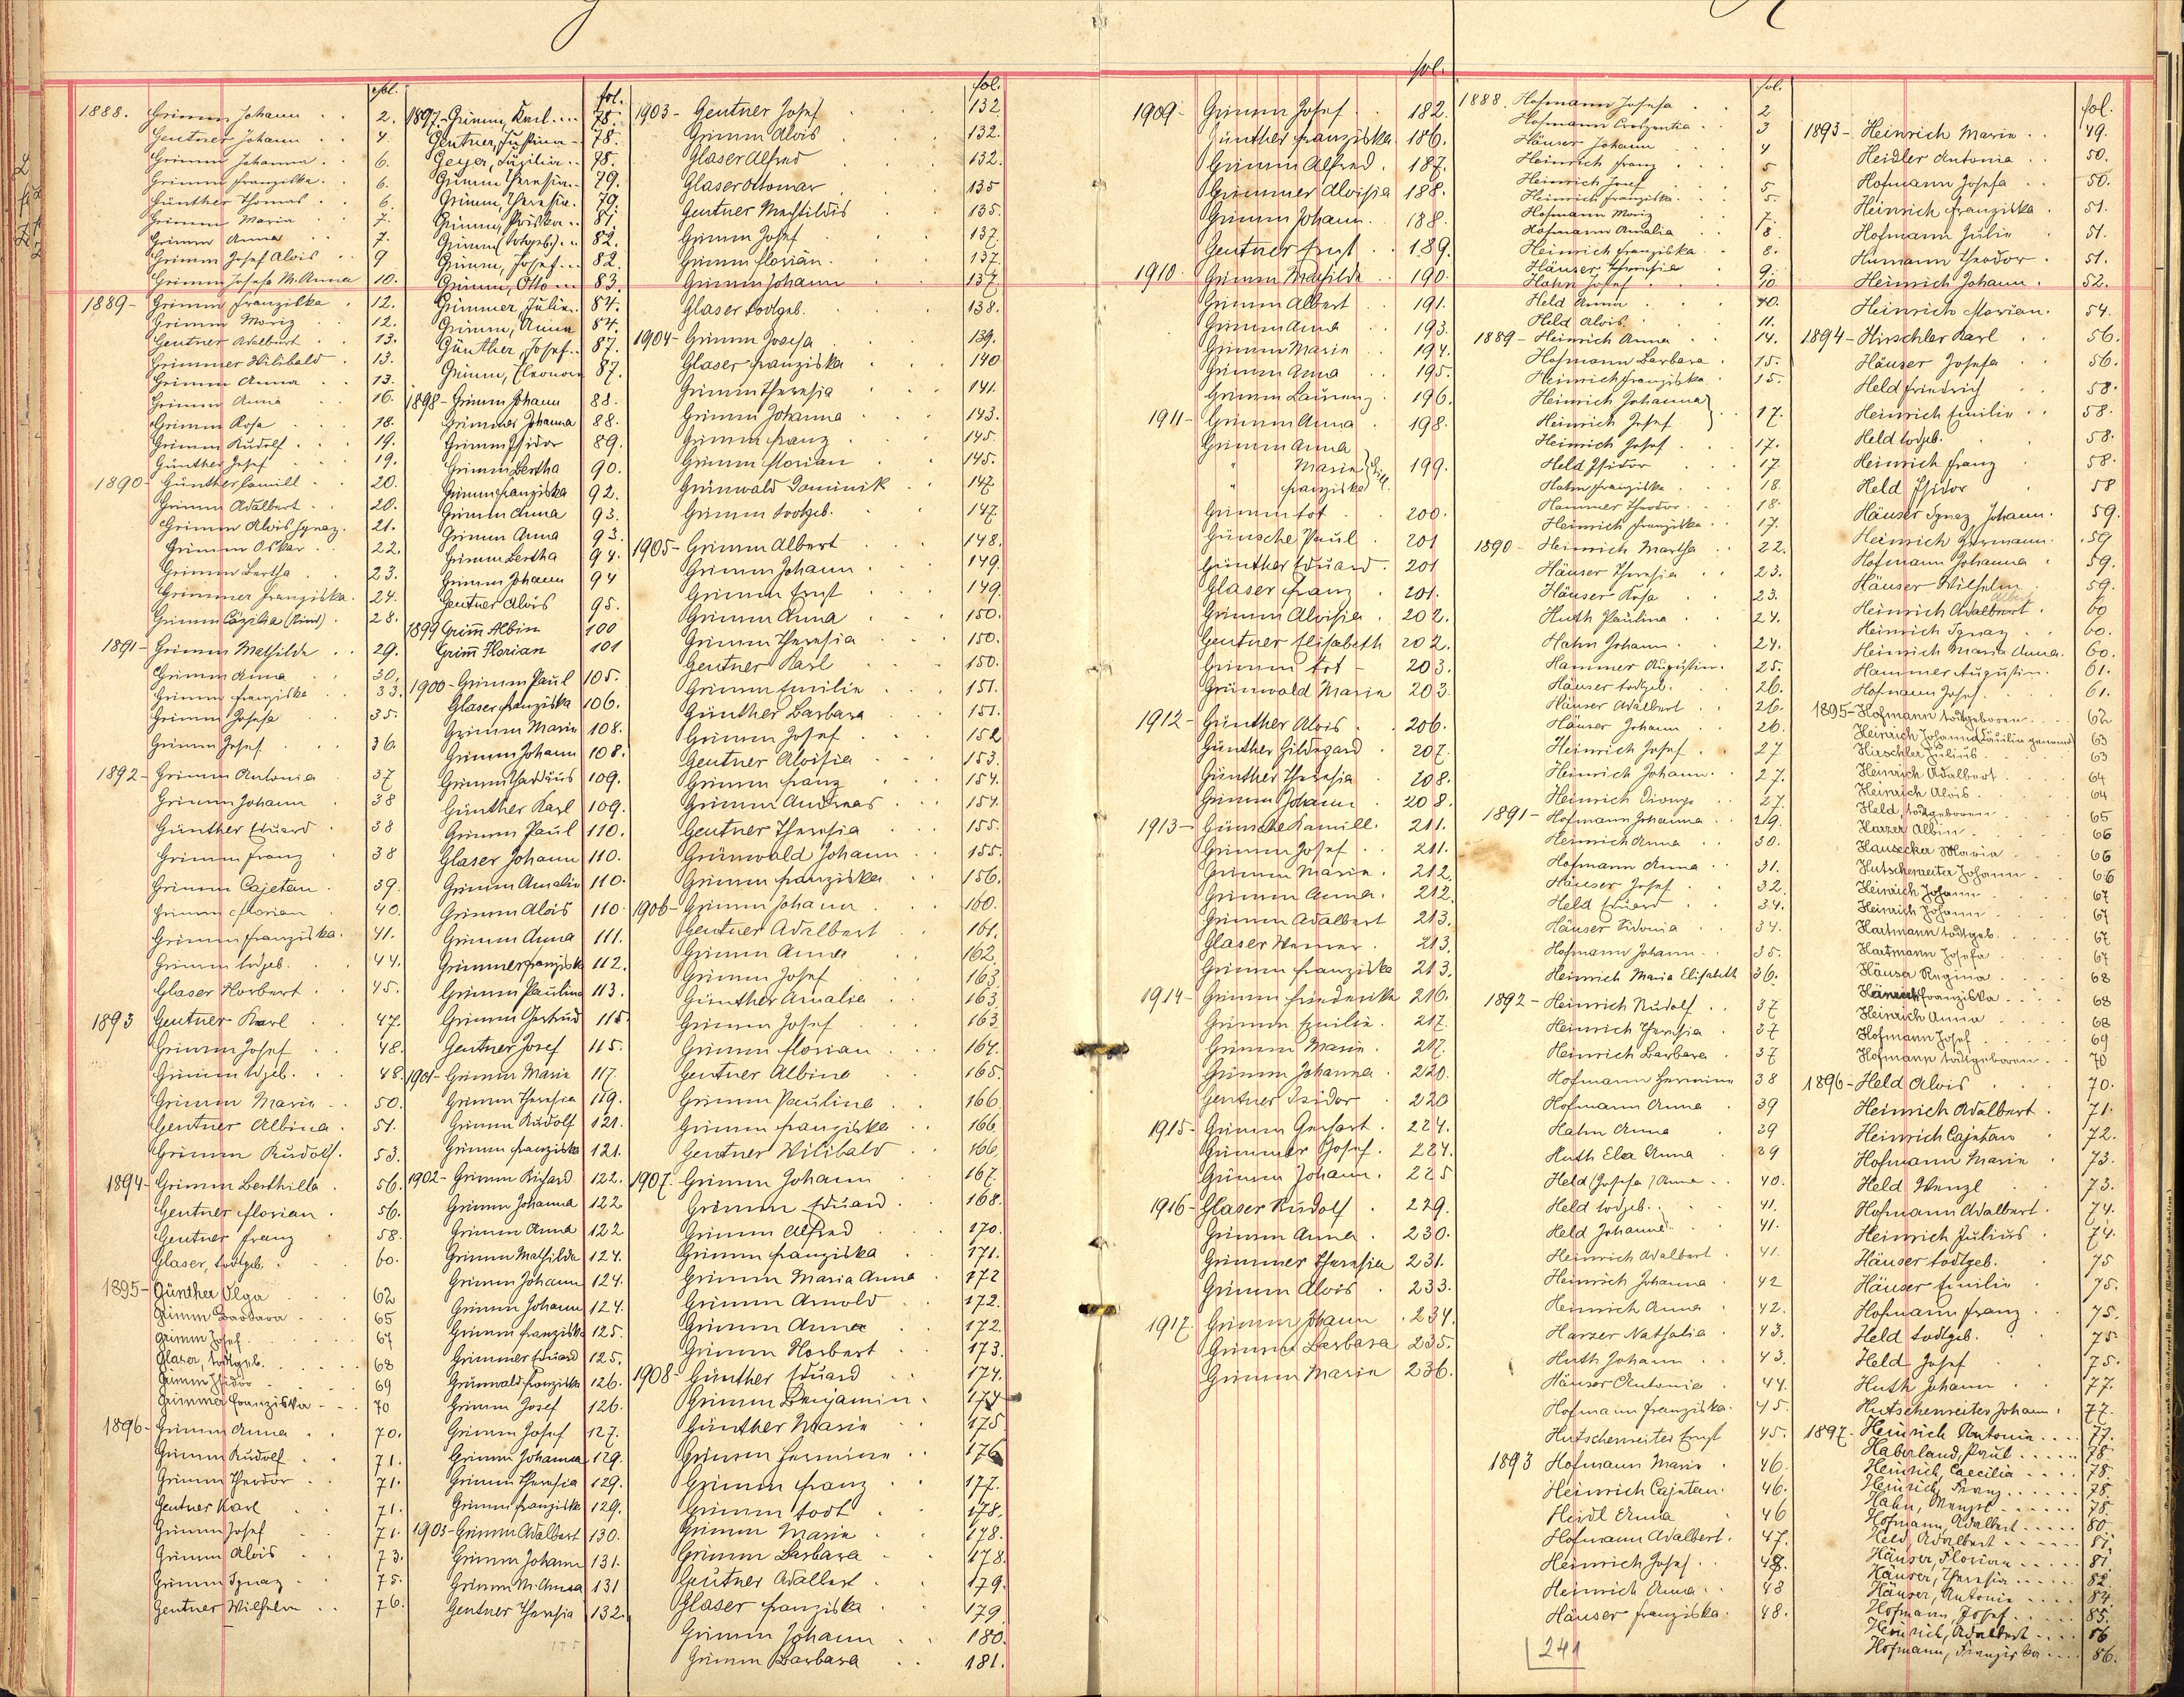 G
fol.
1888. Grimm Johann 2.
Gentner Johann 4.
Grimm Johanna 6.
Grimm Franziska 6.
Günther Thomas 6.
Grimm Maria 7.
Grimm Anna 7.
Grimm Josef Alois 9
Grimm Josefa M. Anna 10.
1889 - Grimm Franziska 12.
Grimm Moriz 12.
Gentner Adalbert 13.
Grimmer Wilibald 13.
Grimm Anna 13.
Grimm Anna 16.
Grimm Rosa 18.
Grimm Rudolf 19.
Günther Josef 19.
1890 - Günther Camill 20.
Grimm Adalbert 20.
Grimm Alois Ignaz. 21.
Grimm Oskar 22.
Grimm Bertha 23.
Grimmer Franziska. 24.
Grimm Cäzilia (Kind) 28.
1891 - Grimm Mathilde 29.
Grimm Anna 30.
Grimm Franziska 33.
Grimm Josefa 35.
Grimm Josef 36.
1892 - Grimm Antonia 37
Grimm Johann 38
Günther Eduard 38
Grimm Franz 38
Grimm Cajetan 39.
Grimm Florian 40.
Grimm Franziska. 41.
Grimm todgeb. 44.
Glaser Norbert 45.
1893 Gentner Karl 47.
Grimm Josef 48.
Grimm tdgeb. 48.
Grimm Maria 50.
Gentner Albina 51.
Grimm Rudolf. 53.
1894 - Grimm Berthilla 56.
Gentner Florian 56.
Gentner Franz 58.
Glaser, todtgeb. 60.
1895 - Günther Olga 62
Grimm Barbara 65
Grimm Josef 67
Glaser, todtgeb. 68
Grimm Isidor 69
Grimmer Franziska 70
1896 - Grimm Anna 70.
Grimm Rudolf 71.
Grimm Theodor 71.
Gentner Karl 71.
Grimm Josef 71.
Grimm Alois 73.
Grimm Ignaz 75.
Gentner Wilhelm 76.
fol.
1897 - Grimm, Karl 78.
Gentner, Justina 78.
Geyer, Cäzilia 78.
Grimm Theresia 79.
Grimm, Theresia. 79.
Grimm, Priska 81.
Grimm (todtgeb.) 82.
Grimm, Josef 82.
Grimm, Otto 83.
Grimmer, Julie 84.
Grimm, Anna 84.
Günther, Josef 87.
Grimm, Eleonora 87.
1898 - Grimm Johann 88.
Grimmer Johanna 88.
Grimm Isidor 89.
Grimm Bertha 90.
Grimm Franziska 92.
Grimm Anna 93.
Grimm Anna 93.
Grimm Bertha 94.
Grimm Johann 94
Gentner Alois 95.
1899 Grim̄ Albin 100
Grim̄ Florian 101
1900 - Grimm Paul 105.
Glaser Franziska 106.
Grimm Maria 108.
Grimm Johann 108.
Grimm Thaddäus 109.
Günther Karl 109.
Grimm Paul 110.
Glaser Johann 110.
Grimm Amalia 110.
Grimm Alois 110.
Grimm Anna 111.
Grimmer Franziska 112.
Grimm Paulina 113.
Grimm Gertrud 115.
Gentner Josef 115.
1901 - Grimm Maria 117.
Grimm Theresia 119.
Grimm Rudolf 121.
Grimm Franziska 121.
1902 - Grimm Richard 122.
Grimm Johanna 122
Grimm Anna 122
Grimm Mathilde 124.
Grimm Johann 124.
Grimm Johann 124.
Grimm Franziska 125.
Grimmer Eduard 125.
Grünwald Franziska 126.
Grimm Josef 126.
Grimm Josef 127.
Grimm Johanna 129.
Grimm Theresia 129.
Grimm Franziska 129.
1903 - Grimm Adalbert 130.
Grimm Johann 131.
Grimm M. Anna 131
Gentner Theresia 132.
175
fol.
1903 - Gentner Josef 132.
Grimm Alois 132.
Glaser Alfred 132.
Glaser Ottomar 135
Gentner Mechtildis 135.
Grimm Josef 137.
Grimm Florian. 137.
Grimm Johann 137.
Glaser todtgeb. 138.
1904 - Grimm Josefa 139.
Glaser Franziska 140
Grimm Theresia 141.
Grimm Johanna 143.
Grimm Franz 145.
Grimm Florian 145.
Grünwald Dominik 147.
Grimm todtgeb. 147.
1905 - Grimm Albert 148.
Grimm Johann 149.
Grimm Ernst 149.
Grimm Anna 150.
Grimm Theresia 150.
Gentner Karl 150.
Grimm Emilie 151.
Günther Barbara 151.
Grimm Josef 152
Gentner Aloisia 153.
Grimm Franz 154.
Grimm Andreas 154.
Gentner Theresia 155.
Grünwald Johann 155.
Grimm Franziska 156.
1906 - Grimm Johann 160.
Gentner Adalbert 161.
Grimm Anna 162.
Grimm Josef 163.
Günther Amalie 163.
Grimm Josef 163
Grimm Florian 164.
Gentner Albine 165.
Grimm Pauline 166.
Grimm Franziska 166
Gentner Wilibald 166.
1907 - Grimm Johann 167.
Grimm Eduard 168.
Grimm Alfred 170.
Grimm Franziska 171.
Grimm Maria Anna 172
Grimm Arnold 172.
Grimm Anna 172.
Grimm Norbert 173.
1908 - Günther Eduard 174.
Grimm Benjamin 174
Günther Maria 175
Grimm Hermine 176
Grimm Franz 177.
Grimm todt 178.
Grimm Maria 178.
Grimm Barbara 178.
Gentner Adalbert 179.
Glaser Franziska 179
Grimm Johann 180.
Grimm Barbara 181.
fol.
1909 - Grimm Josef 182.
Günther Franziska 186.
Grimm Alfred 187.
Grimmer Aloisia 188.
Grimm Johann 188.
Gentner Ernst 189.
1910 Grimm Mathilde 190.
Grimm Albert 191.
Grimm Anna 193.
Grimm Maria 194.
Grimm Anna 195.
Grimm Laurenz 196.
1911 - Grimm Anna 198.
Grimm Anna
" Maria 199.
" Franziska
Grimm tot 200.
Günsche Paul 201
Günther Eduard 201
Glaser Franz 201.
Grimm Aloisia 202.
Gentner Elisabeth 202.
Grimm tot - 203.
Grünwald Maria 203.
1912 - Günther Alois 206.
Günther Hildegard 207.
Günther Theresia 208.
Grimm Johann 208.
1913 - Günsche Kamill. 211.
Grimm Josef 211.
Grimm Maria. 212.
Grimm Anna. 212.
Grimm Adalbert 213.
Glaser Werner 213.
Grimm Franziska 213.
1914 - Grimm Friederika 216.
Grimm Emilie. 217.
Grimm Maria 217.
Grimm Johanna 220.
Gentner Isidor 220
1915 - Grimm Gerhart 224.
Grimmer Josef. 224.
Grimm Johann. 225
1916 - Glaser Rudolf 229.
Grimm Anna 230.
Grimmer Theresia 231.
Grimm Alois 233.
1917. Grimm Johann 234.
Grimm Barbara 235.
Grimm Maria 236.
fol.
1888. Hofmann Josefa 2
Hofmann Creszentia 3
Häuser Johann 4
Heinrich Franz 5
Heinrich Josef 5
Heinrich Franziska 5.
Hofmann Moriz 7.
Hofmann Amalia 8
Heinrich Franziska 8.
Häuser Theresia 9.
Hahn Josef 10
Held Anna 10.
Held Alois 11.
1889 - Heinrich Anna 14.
Hofmann Barbara 15.
Heinrich Franziska 15.
Heinrich Johanna
Heinrich Josef 17.
Heinrich Josef 17.
Held Isidor 17
Hahn Franziska 18
Hammer Theodor 18.
Heinrich Franziska 17.
1890 - Heinrich Martha 22.
Häuser Theresia 23.
Häuser Rosa 23.
Huth Paulina 24.
Hahn Johann 24.
Hammer Augustin. 25.
Häuser todtgeb. 26.
Häuser Adalbert 26.
Häuser Johann 26.
Heinrich Josef 27
Heinrich Johann 27.
Heinrich Dionys 27.
1891 - Hofmann Johanna 29.
Heinrich Anna 30.
Hofmann Anna 31.
Häuser Josef 32
Held Eduard 34.
Häuser Sidonia 34.
Hofmann Johann 35.
Heinrich Maria Elisabeth 36.
1892 - Heinrich Rudolf 37
Heinrich Theresia 37
Heinrich Barbara 37
Hofmann Hermine 38
Hofmann Anna 39
Hahn Anna 39
Huth Ela Anna 39
Held (Josefa) Anna 40.
Held todgeb. 41.
Held Johanna 41.
Heinrich Adalbert 41.
Heinrich Johanna 42
Heinrich Anna 42.
Harzer Nathalia 43.
Huth Johann 43.
Häuser Antonie 44.
Hofmann Franziska. 45.
Hutschenreiter Ernst 45.
1893 Hofmann Maria 46.
Heinrich Cajetan. 46.
Heidl Anna 46
Hofmann Adalbert. 47.
Heinrich Josef 48.
Heinrich Anna 48
Häuser Franziska. 48.
241
fol.
1893 - Heinrich Marie 49.
Heidler Antonia 50.
Hofmann Josefa 50.
Heinrich Franziska 51.
Hofmann Julie 51.
Humann Theodor 51.
Heinrich Johann 52.
Heinrich Florian. 54.
1894 - Hirschler Karl 56.
Häuser Josefa 56.
Held Friedrich 58.
Heinrich Emilie 58.
Held todgeb. 58.
Heinrich Franz 58.
Held Isidor 58
Häuser Ignaz Johann. 59.
Heinrich Hermann. 59
Hofmann Johanna 59.
Häuser Wilhelm 59.
Albert
Heinrich Adalbert 60
Heinrich Ignaz 60.
Heinrich Maria Anna. 60.
Hammer Augustin. 61.
Hofmann Josef 61.
1895 - Hofmann todtgeboren 62
Heinrich Johanna Paulin genannt 63
Hirschler Julius 63
Heinrich Adalbert 64
Heinrich Alois 64
Held, todtgeboren 65
Harzer Albin 66
Hausecker Maria 66
Hutschenreiter Johann 66
Heinrich Johann 67
Heinrich Johann 67
Hartmann todtgeb. 67
Hartmann Josefa 67
Häuser Regina 68
Heinrich Franziska 68
Heinrich Anna 68
Hofmann Josef 69
Hofmann todtgeboren 70
1896 - Held Alois 70.
Heinrich Adalbert 71.
Heinrich Cajetan 72.
Hofmann Maria 73.
Held Wenzl 73.
Hofmann Adalbert. 74.
Heinrich Julius 74.
Häuser todtgeb. 75
Häuser Emilie 75.
Hofmann Franz 75.
Held todtgeb. 75
Held Josef 75.
Huth Johann 77.
Hutschenreiter Johann. 77.
1897 - Heinrich Antonie 77.
Haberland, Paul 78.
Heinrich, Caecilia 78.
Heinrich, Franz 78.
Hahn, Wenzel 78.
Hofmann, Adalbert 80.
Held, Adalbert 81.
Häuser, Florian 81.
Häuser, Theresia 82.
Häuser, Antonie 84.
Hofmann, Josef 85.
Heinrich, Adalbert 86
Hofmann, Franziska 86.